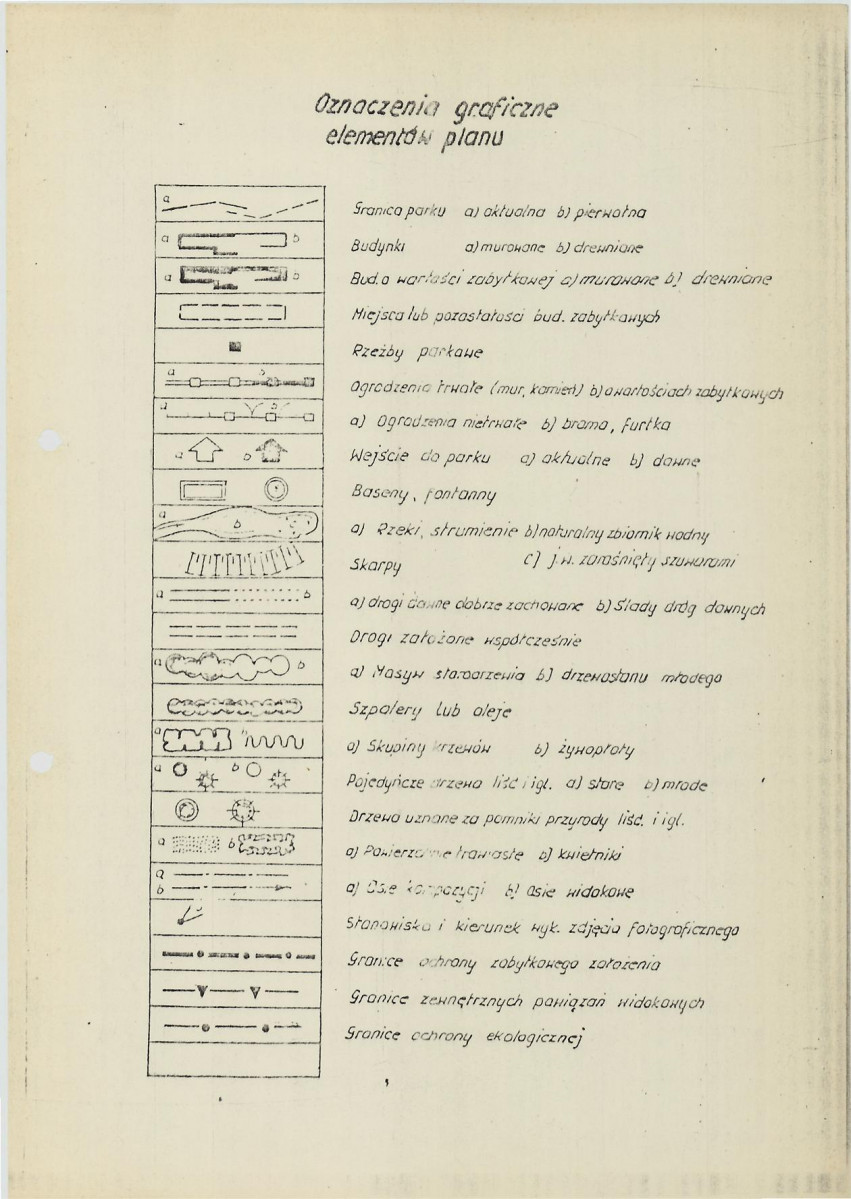 Oznaczenia graficzne
elementów planu
a
Granica parku a) aktualna b) pierwotna
a b
Budynki a) murowane b) drewniane
a b
Bud. o wartości zabytkowej a) murowane b) drewniane
Miejsca lub pozostałości bud. zabytkowych
Rzeźby parkowe
a b
Ogrodzenia trwałe (mur, kamień) b) o wartościach zabytkowych
a b
a) Ogrodzenia nietrwałe b) brama, furtka
a b
Wejście do parku a) aktualne b) dawne
Baseny, fontanny
a b
a) Rzeki, strumienie b) naturalny zbiornik wodny
Skarpy c) j.w. zarośnięty szuwarami
a b
a) drogi dawne dobrze zachowane b) Ślady dróg dawnych
Drogi założone współcześnie
a b
a) Masyw starodrzewia b) drzewostanu młodego
Szpalery lub aleje
a
a) Skupiny krzewów b) żywopłoty
a b
Pojedyńcze drzewa liść i igl. a) stare b) młode
Drzewa uznane za pomniki przyrody liść. i igl.
a b
a) Powierzchnie trawiaste b) kwietniki
a
b
a) Osie kompozycji b) osie widokowe
Stanowiska i kierunek wyk. zdjęcia fotograficznego
Granice ochrony zabytkowego założenia
Granice zewnętrznych powiązań widokowych
Granice ochrony ekologicznej